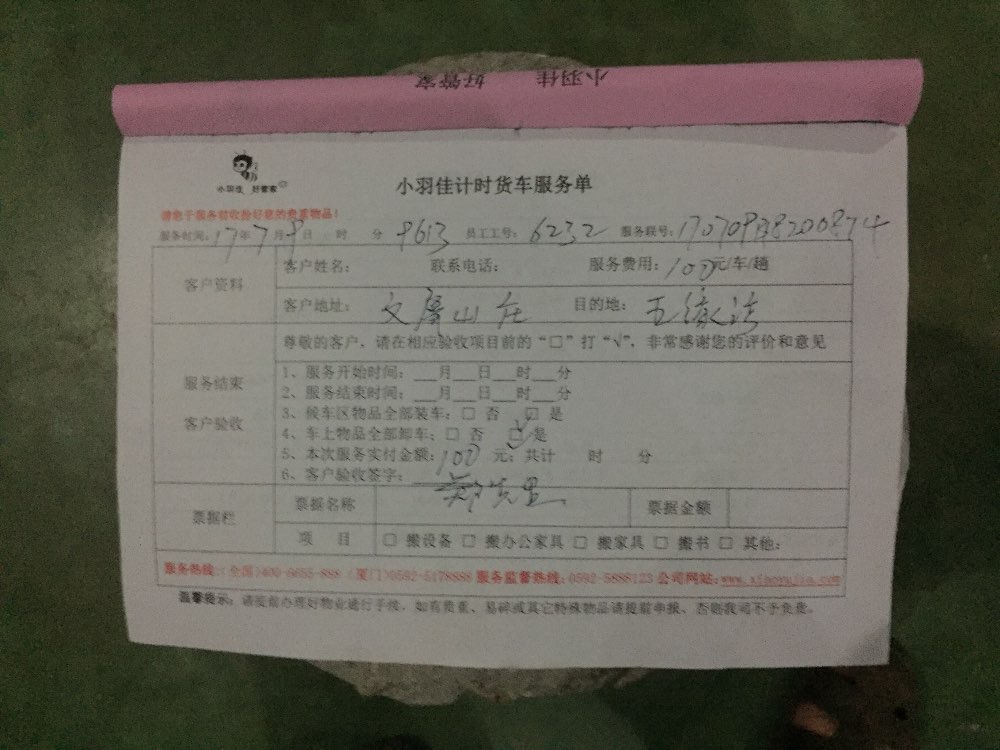 小羽佳 好管家
小羽佳 好管家
小羽佳计时货车服务单
请您于服务前收验好您的贵重物品!
服务时间: 17年7月9日 时 分 9613 员工工号: 6232 服务联号:
客户资料
客户姓名: 联系电话: 服务费用: 100元/车/趟
客户地址: 文 山庄 目的地: 五
服务结束
客户验收
尊敬的客户、请在相应验收项目前的“□”打“√”,非常感谢您的评价和意见
1、服务开始时间: ___月___日___时___分
2、服务结束时间: ___月___日___时___分
3、候车区物品全部装车: □ 否 □ 是
4、车上物品全部卸车: □ 否 ☑ 是
5、本次服务实付金额: 100 元; 共计 时 分
6、客户验收签字: 郑先生
票据栏
票据名称 票据金额
项 目 □ 搬设备 □ 搬办公家具 □ 搬家具 □ 搬书 □ 其他:
服务热线: (全国)400-6655-888 (厦门)0592-5178888 服务监督热线: 0592-5688123 公司网站: www.xiaoyujia.com
温馨提示: 请提前办理好物业通行手续, 如有贵重、易碎或其它特殊物品请提前申报、否则我司不予负责。